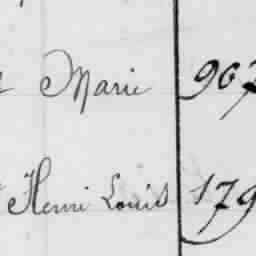 Marie 967
Henri Louis 179